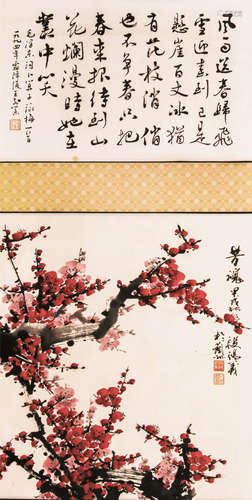 风雨送春归飛
雪迎春到已是
懸崖百丈冰猶
有花枝俏俏
也不争春只把
春来报待到山
花爛漫時她在
叢中笑
毛泽东词卜算子咏梅一首
一九九四年
甲戌